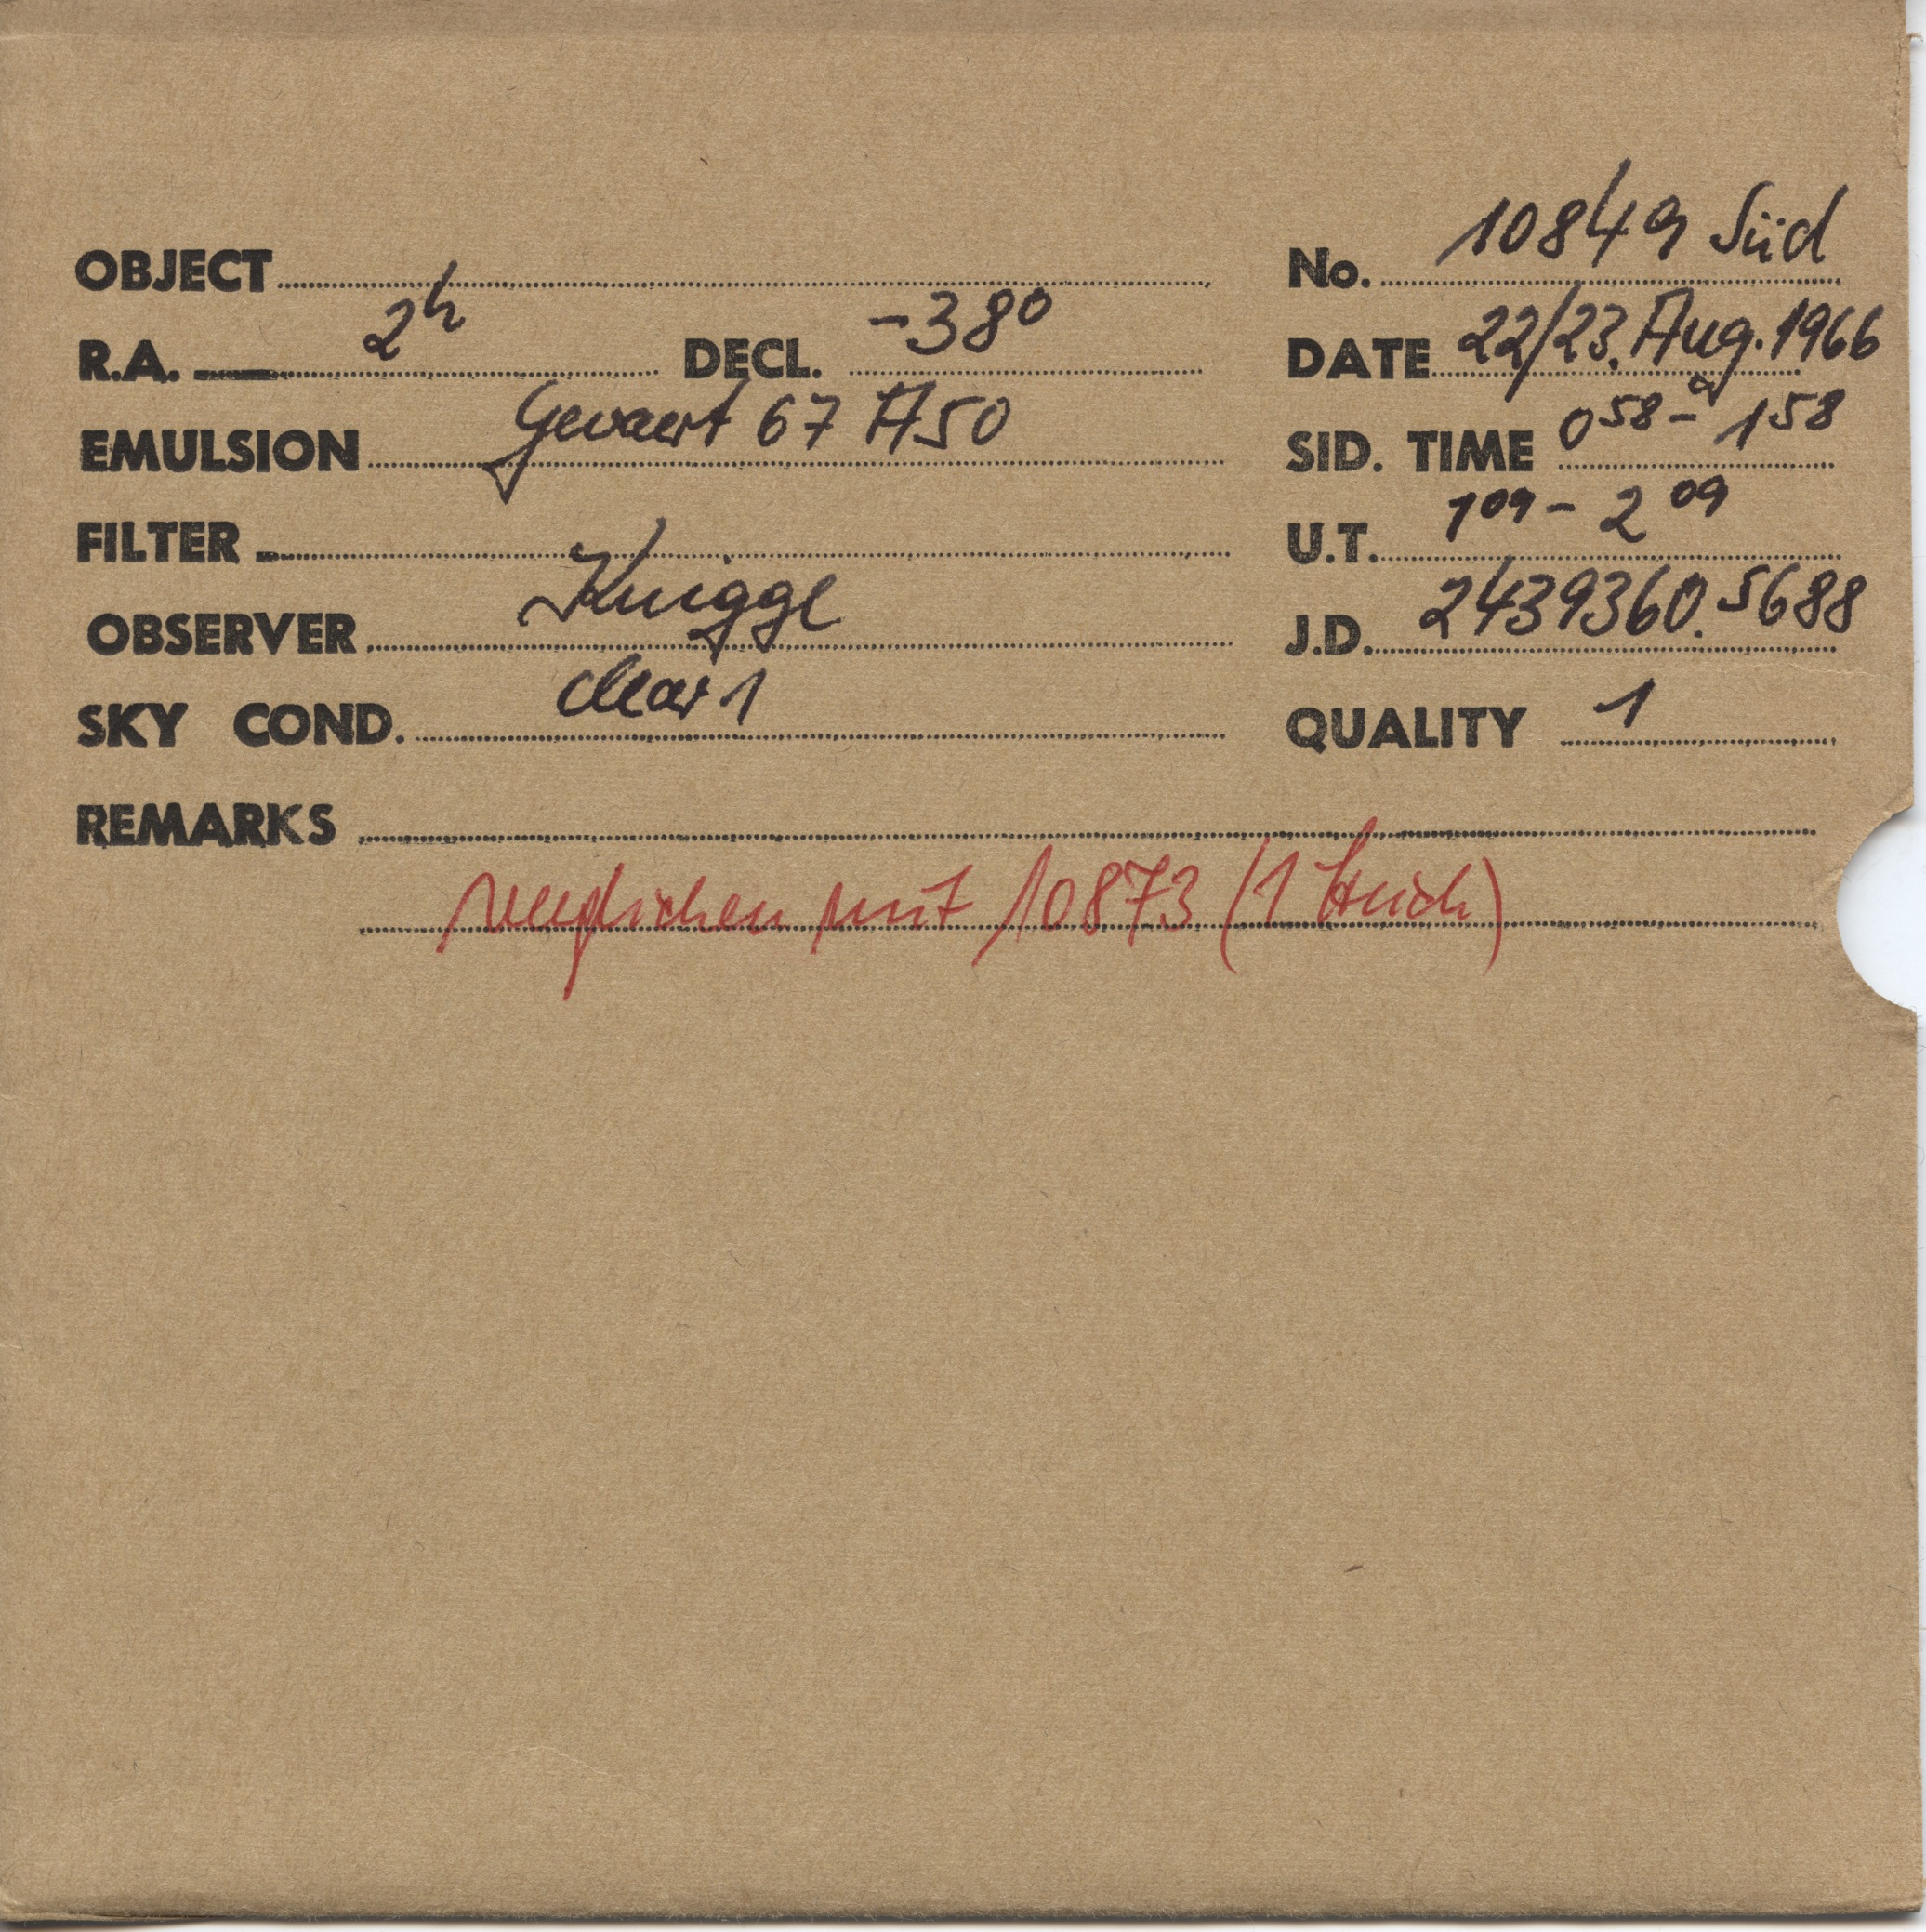 OBJECT No. 10849 Süd
R.A. 2h DECL. -38° DATE 22/23. Aug. 1966
EMULSION Gevaert 67 A50 SID. TIME 0 58 - 1 58
FILTER U.T. 1 09 - 2 09
OBSERVER Knigge J.D. 2439360.5688
SKY COND. clear 1 QUALITY 1
REMARKS
verglichen mit 10873 (1 Stich)